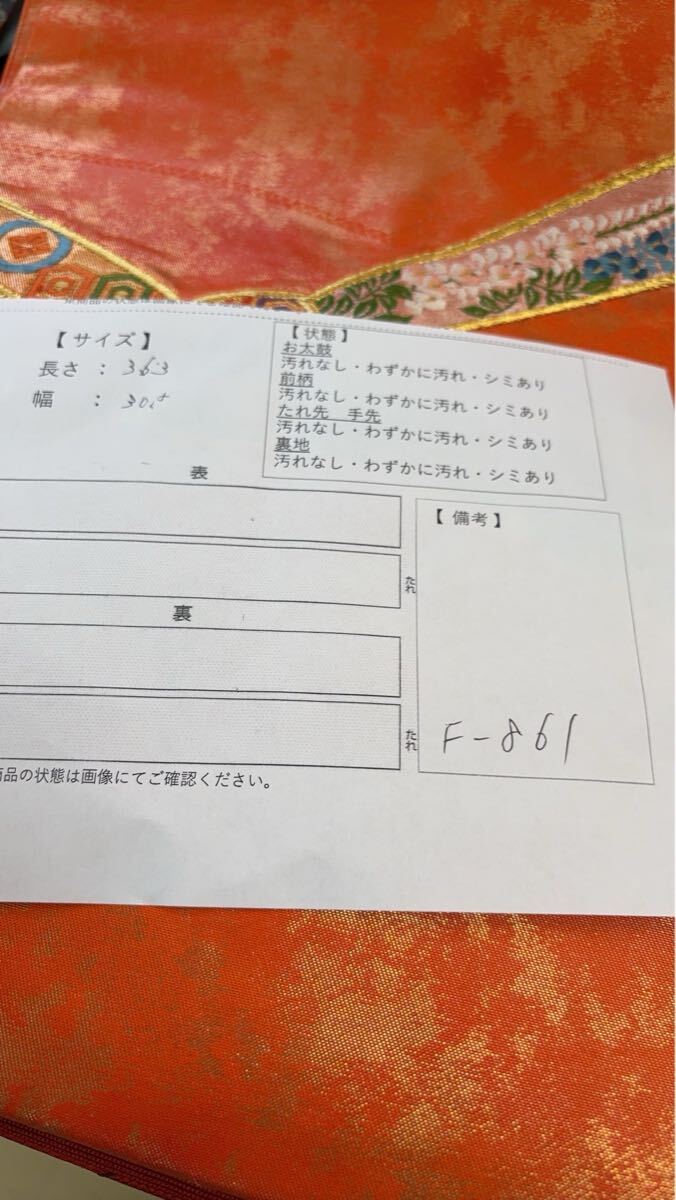 【サイズ】
長さ : 363
幅 : 30.5
【状態】
お太鼓
汚れなし・わずかに汚れ・シミあり
前柄
汚れなし・わずかに汚れ・シミあり
たれ先 手先
汚れなし・わずかに汚れ・シミあり
裏地
汚れなし・わずかに汚れ・シミあり
表
たれ
裏
たれ
【備考】
F-861
商品の状態は画像にてご確認ください。